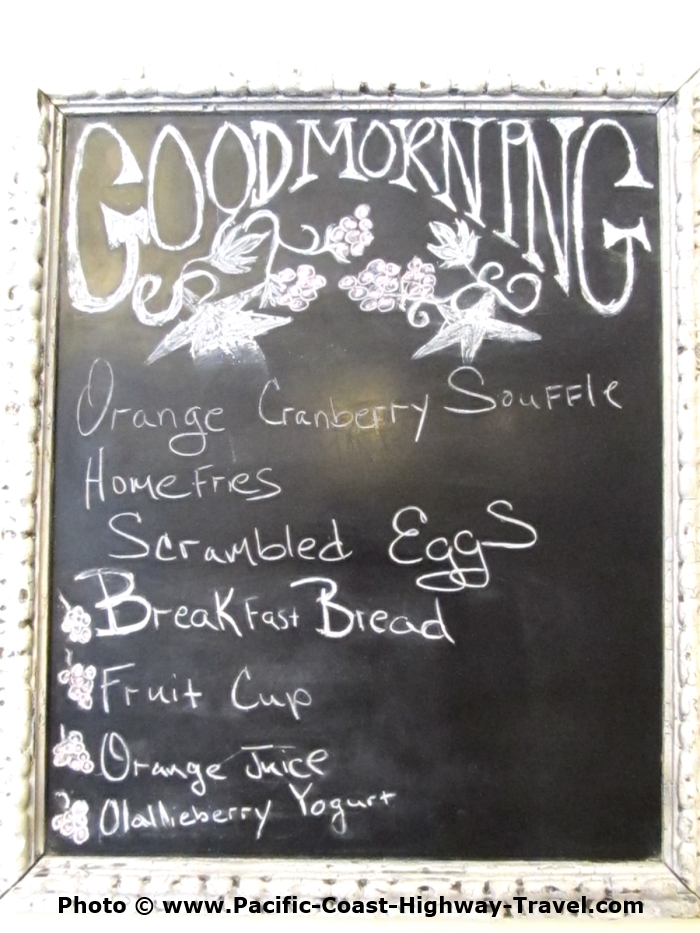 GOOD MORNING
Orange Cranberry Souffle
Home Fries
Scrambled Eggs
Breakfast Bread
Fruit Cup
Orange Juice
Olallieberry Yogurt
Photo © www.Pacific-Coast-Highway-Travel.com